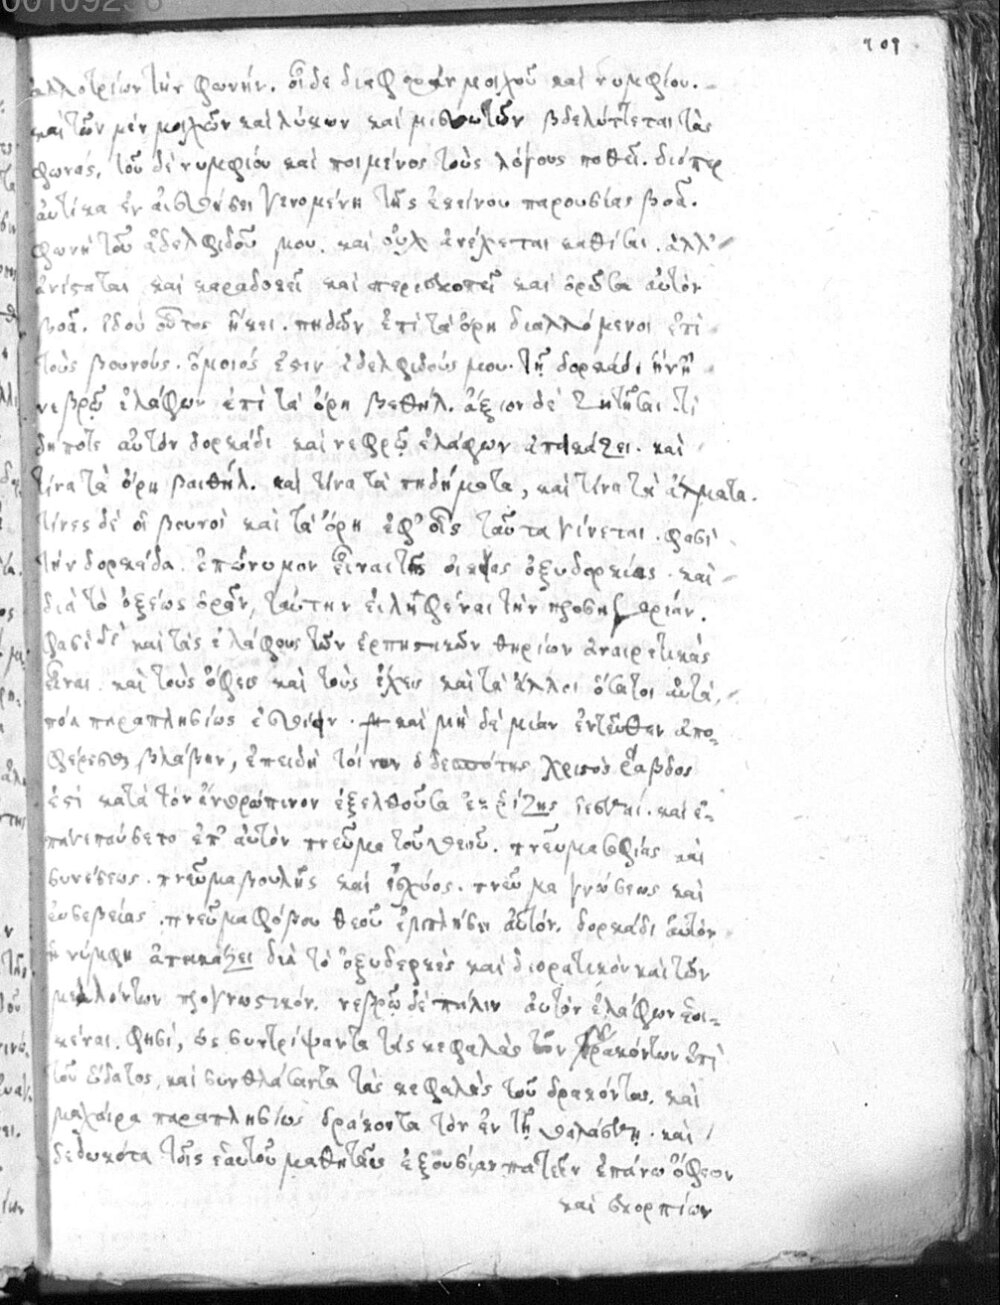 00109256
109
ἀλλοτρίων τὴν φωνήν. οἶδε διαφορὰν μοιχοῦ καὶ νυμφίου.
καὶ τῶν μὲν μοιχῶν καὶ λύκων καὶ μισθωτῶν βδελύττεται τὰς
φωνάς, τοῦ δὲ νυμφίου καὶ ποιμένος τοὺς λόγους ποθεῖ. διόπερ
αὐτίκα ἐν αἰσθήσει γενομένη τῆς ἐκείνου παρουσίας βοᾷ.
φωνὴ τοῦ ἀδελφιδοῦ μου. καὶ οὐχ ἀνέχεται καθίσαι. ἀλλ'
ἀνίσταται καὶ καραδοκεῖ καὶ περισκοπεῖ καὶ ὁρῶσα αὐτὸν
βοᾷ. ἰδοὺ οὗτος ἥκει. πηδῶν ἐπὶ τὰ ὄρη διαλλόμενοι ἐπὶ
τοὺς βουνούς. ὅμοιός ἐστιν ἀδελφιδούς μου. τῇ δορκάδι ἢ
νεβρῷ ἐλάφων ἐπὶ τὰ ὄρη βεθήλ. ἄξιον δὲ ζητῆσαι τί
δήποτε αὐτὸν δορκάδι καὶ νεφρῷ ἐλάφων ἀπεικάζει. καὶ
τίνα τὰ ὄρη βαιθήλ. καὶ τίνα τὰ πηδήματα, καὶ τίνα τὰ ἅλματα.
τίνες δὲ οἱ βουνοὶ καὶ τὰ ὄρη ἐφ' οἷς ταῦτα γίνεται. φασὶ
τὴν δορκάδα ἐπώνυμον εἶναι τῆς οἰκείας ὀξυδορκίας. καὶ
διὰ τὸ ὀξέως ὁρᾶν, ταύτην εἰληφέναι τὴν προσηγορίαν.
φασὶ δὲ καὶ τὰς ἐλάφους τῶν ἑρπηστικῶν θηρίων ἀναιρετικὰς
εἶναι. καὶ τοὺς ὄφεις καὶ τοὺς ἔχεις καὶ τὰ ἄλλα αὐτά,
πόα παραπλησίως ἐσθίειν. καὶ μὴ δὲ μίαν ἐντεῦθεν ἀπο-
φέρεσθαι βλάβην, ἐπειδὴ τοίνυν ὁ δεσπότης χριστὸς ῥάβδος
ἐστὶ κατὰ τὸν ἀνθρώπινον ἐξελθοῦσα ἐκ ῥίζης ἰεσσαί. καὶ ἐ-
πανεπαύσετο ἐπ' αὐτὸν πνεῦμα τοῦ θεοῦ. πνεῦμα σοφίας καὶ
συνέσεως. πνεῦμα βουλῆς καὶ ἰσχύος. πνεῦμα γνώσεως καὶ
εὐσεβείας. πνεῦμα φόβου θεοῦ ἐμπλήσει αὐτόν. δορκάδι αὐτὸν
ἡ νύμφη ἀπεικάζει διὰ τὸ ὀξυδερκὲς καὶ διορατικὸν καὶ τῶν
μελλόντων προγνωστικόν. νεβρῷ δὲ πάλιν αὐτὸν ἐλάφων ἐοι-
κέναι φησί, ὡς συντρίψαντα τὰς κεφαλὰς τῶν δρακόντων ἐπὶ
τοῦ ὕδατος, καὶ συνθλάσαντα τὰς κεφαλὰς τοῦ δράκοντος. καὶ
μαχαίρα παραπλησίως δράκοντα τὸν ἐν τῇ θαλάσσῃ. καὶ
δεδωκότα τοῖς ἑαυτοῦ μαθηταῖς ἐξουσίαν πατεῖν ἐπάνω ὄφεων
καὶ σκορπίων